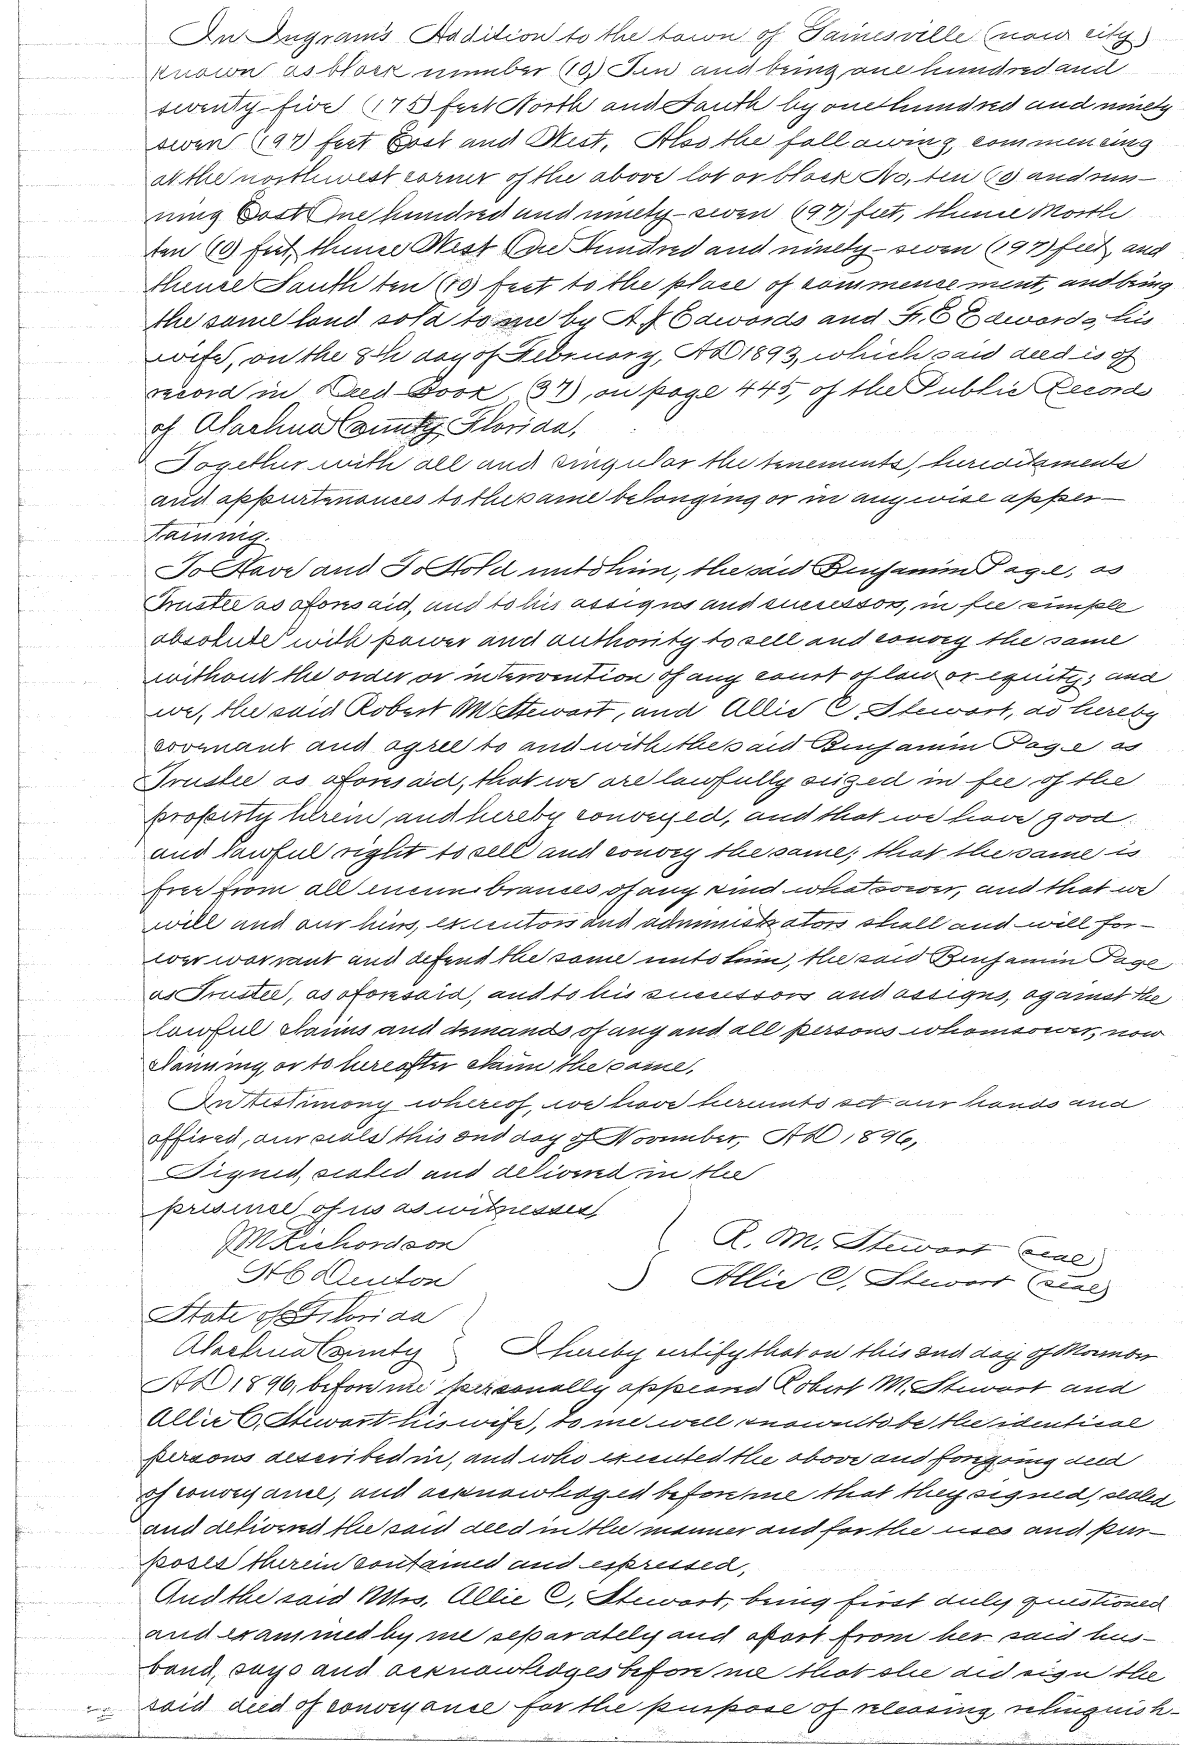 In Ingram's Addition to the town of Gainesville (now city)
known as block number (10) Ten and being one hundred and
seventy-five (175) feet North and South by one hundred and ninety
seven (197) feet East and West. Also the following, commencing
at the northwest corner of the above lot or block No, ten (10) and run-
ning East One hundred and ninety-seven (197) feet, thence North
ten (10) feet, thence West One Hundred and ninety-seven (197) feet, and
thence South ten (10) feet to the place of commencement, and being
the same land sold to me by A. J. Edwards and F. E Edwards, his
wife, on the 8th day of February, AD 1893, which said deed is of
record in Deed Book (37), on page 445, of the Public Records
of Alachua County, Florida,
Together with all and singular the tenements, hereditaments
and appurtenances to the same belonging or in anywise apper-
taining.
To Have and To Hold unto him, the said Benjamin Page, as
Trustee as aforesaid, and to his assigns and successor, in fee simple
absolute with power and authority to sell and convey the same
without the order or intervention of any court of law or equity; and
we, the said Robert M Stewart, and Allie C. Stewart, do hereby
covenant and agree to and with the said Benjamin Page as
Trustee as aforesaid, that we are lawfully seized in fee of the
property herein, and hereby conveyed, and that we have good
and lawful right to sell and convey the same; that the same is
free from all encumbrances of any kind whatsoever, and that we
will and our heirs, executors and administrators shall and will for-
ever warrant and defend the same unto him, the said Benjamin Page
as Trustee, as aforesaid, and to his successors and assigns, against the
lawful claims and demands of any and all persons whomsoever, now
claiming, or to hereafter claim the same.
In testimony whereof, we have hereunto set our hands and
affixed, our seals this 2nd day of November, AD 1896,
Signed, sealed and delivered in the
presence of us as witnesses,
J M Richardson
R. M. Stewart (seal)
H C Denton
Allie C. Stewart (seal)
State of Florida
Alachua County I hereby certify that on this 2nd day of November
AD 1896, before me personally appeared Robert M. Stewart and
Allie C. Stewart his wife, to me well known to be the identical
persons described in, and who executed the above and foregoing deed
of conveyance, and acknowledged before me that they signed, sealed
and delivered the said deed in the manner and for the uses and pur-
poses therein contained and expressed,
And the said Mrs. Allie C. Stewart, being first duly questioned
and examined by me separately and apart from her said hus-
band, says and acknowledges before me that she did sign the
said deed of conveyance for the purpose of releasing, relinquish-